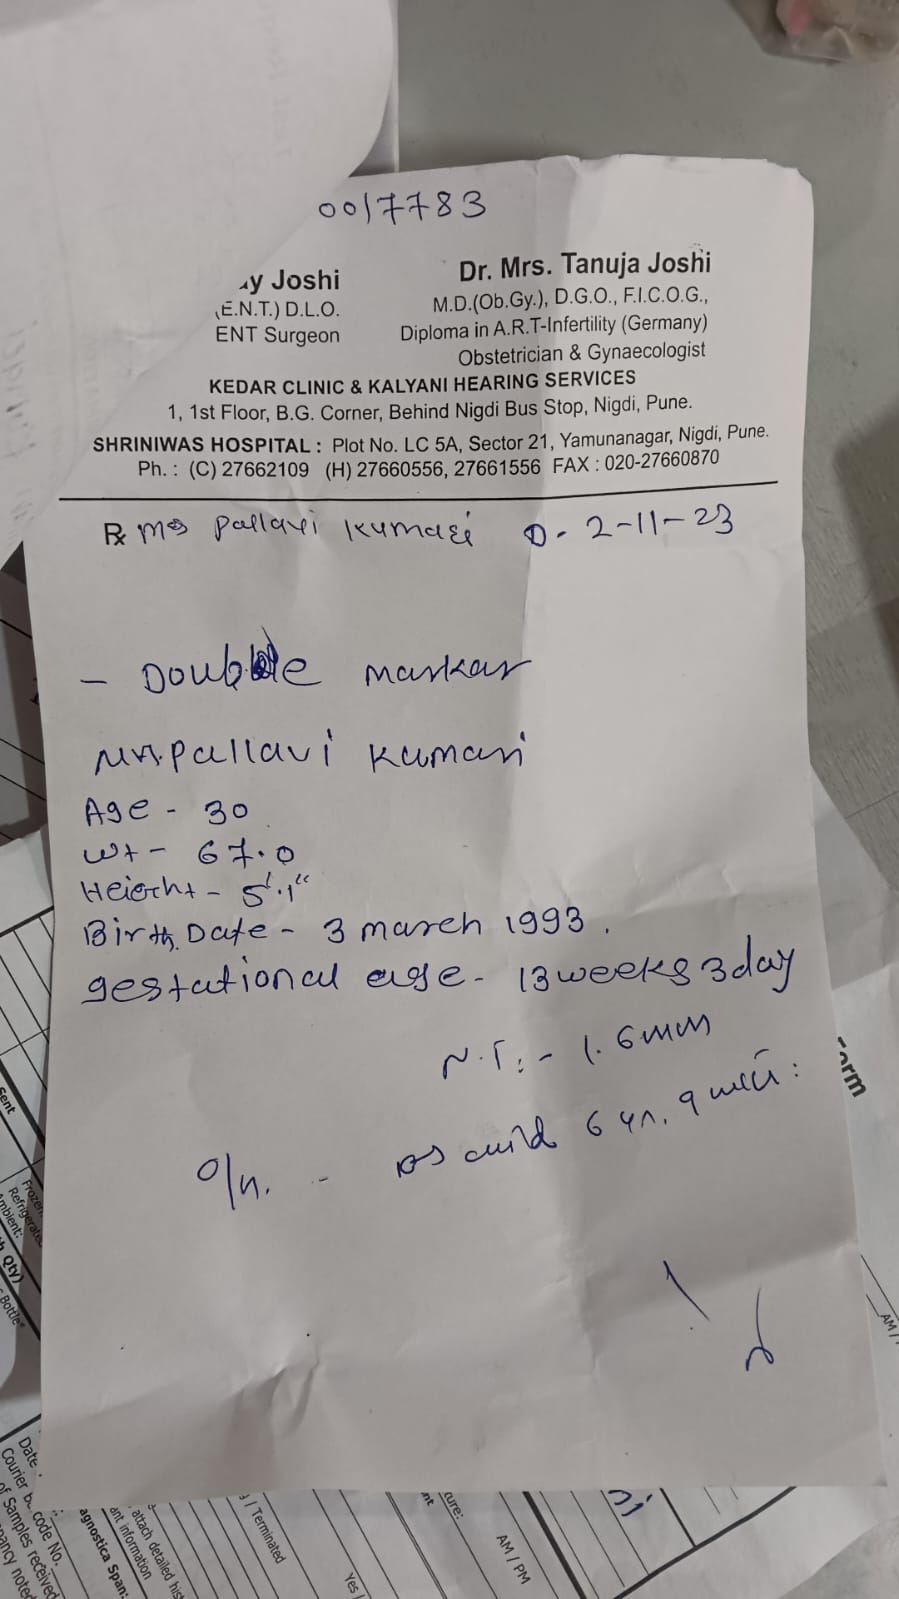 0017783
ay Joshi
(E.N.T.) D.L.O.
ENT Surgeon
Dr. Mrs. Tanuja Joshi
M.D.(Ob.Gy.), D.G.O., F.I.C.O.G.,
Diploma in A.R.T-Infertility (Germany)
Obstetrician & Gynaecologist
KEDAR CLINIC & KALYANI HEARING SERVICES
1, 1st Floor, B.G. Corner, Behind Nigdi Bus Stop, Nigdi, Pune.
SHRINIWAS HOSPITAL : Plot No. LC 5A, Sector 21, Yamunanagar, Nigdi, Pune.
Ph. : (C) 27662109 (H) 27660556, 27661556 FAX : 020-27660870
℞ Mrs Pallavi Kumari D- 2-11-23
- Double markar
Mrs. Pallavi Kumari
Age - 30
Wt - 67.0
Height - 5'.1"
Birth Date - 3 march 1993.
gestational age - 13 weeks 3 day
N.T. :- 1.6mm
O/H. - child 6 yr. 9
orm
Sent
Frozen
Refrigerate
mbient:
Qty)
Bottle
AM /
Date
Courier
code No.
of Samples received
nancy note
agnostica Span:
attach detailed his
ant information
/ Terminated
Yes
nt
ture:
AM / PM